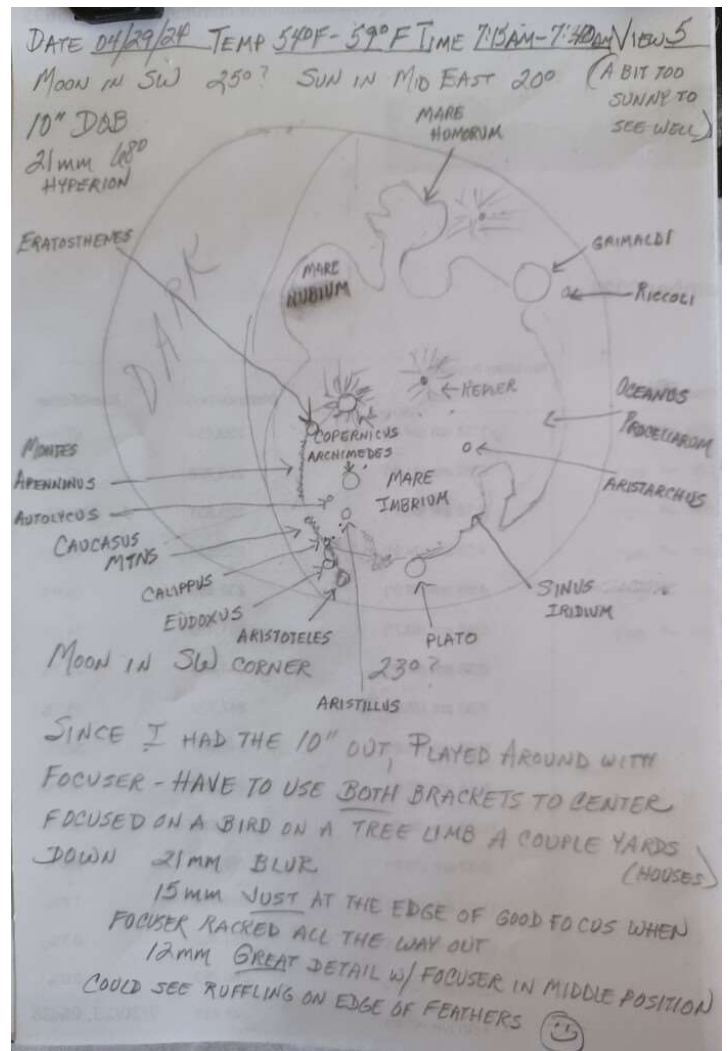 DATE 04/29/24 TEMP 54°F-59°F TIME 7:15AM-7:40AM VIEW 5
MOON IN SW 25°? SUN IN MID EAST 20° (A BIT TOO
SUNNY TO
SEE WELL)
10" DOB
21mm 68°
HYPERION
MARE
HUMORUM
ERATOSTHENES
GRIMALDI
RICCOLI
MARE
NUBIUM
DARK
KEPLER
OCEANUS
PROCELLAROM
COPERNICUS
ARCHIMEDES
MARE
IMBRIUM
ARISTARCHUS
MONTES
APENNINUS
AUTOLYCUS
CAUCASUS
MTNS
CALIPPUS
EUDOXUS
ARISTOTELES
PLATO
SINUS
IRIDIUM
MOON IN SW CORNER 23°?
ARISTILLUS
SINCE I HAD THE 10" OUT, PLAYED AROUND WITH
FOCUSER - HAVE TO USE BOTH BRACKETS TO CENTER
FOCUSED ON A BIRD ON A TREE LIMB A COUPLE YARDS
DOWN 21mm BLUR (HOUSES)
15mm JUST AT THE EDGE OF GOOD FOCUS WHEN
FOCUSER RACKED ALL THE WAY OUT
12mm GREAT DETAIL W/ FOCUSER IN MIDDLE POSITION
COULD SEE RUFFLING ON EDGE OF FEATHERS